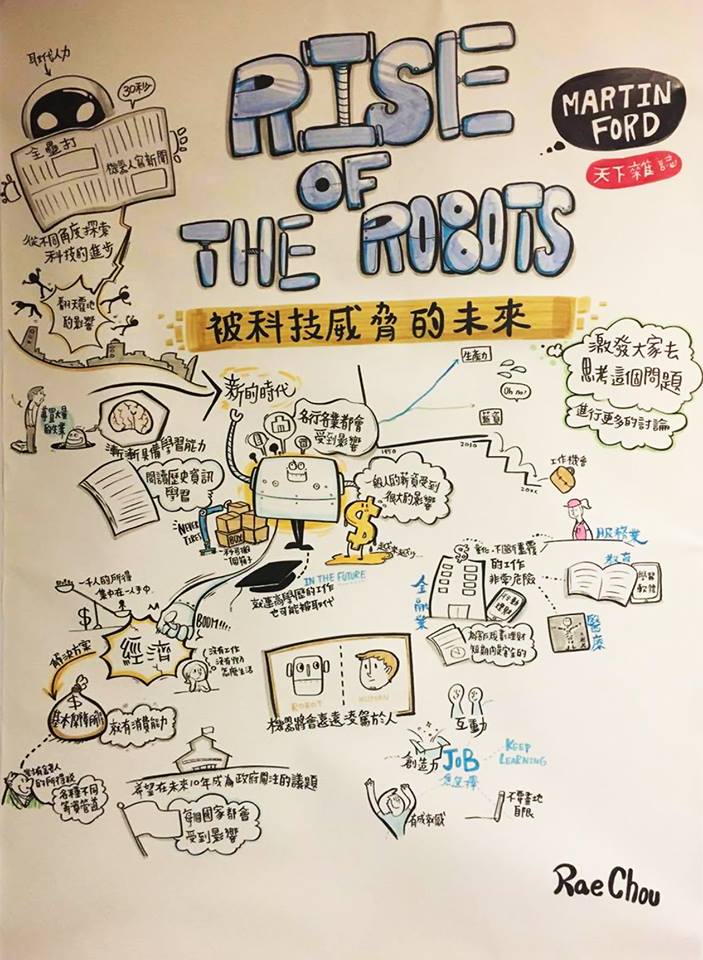 RISE
OF
THE ROBOTS
MARTIN
FORD
天下雜誌
被科技威脅的未來
取代人力
30秒
全壘打
機器人寫新聞
從不同角度探索
科技的進步
翻天覆地
的影響
新的時代
各行各業都會
受到影響
生產力
Oh no!
薪資
1950
2010
激發大家去
思考這個問題
進行更多的討論
的失業
漸漸具備學習能力
閱讀歷史資訊
學習
NEVER
TIRES
BOX
一秒可搬
一個箱子
一般人的薪資受到
很大的影響
越來越少
工作機會
服務業
IN THE FUTURE
就連高學歷的工作
也可能被取代
金融業
的工作
非常危險
教育
學習
軟體
醫療
短期內是安全的
一千人的所得
集中在一人手中
BOOM!!!
經濟
解決方案
沒有工作
怎麼生活
ROBOT
HUMAN
機器將會遠遠凌駕於人
就有消費能力
各種不同
籌資管道
希望在未來10年成為政府關注的議題
每個國家都會
受到影響
互動
創造力
JOB
怎麼擇
KEEP
LEARNING
有成就感
不要畫地
自限
Rae Chou